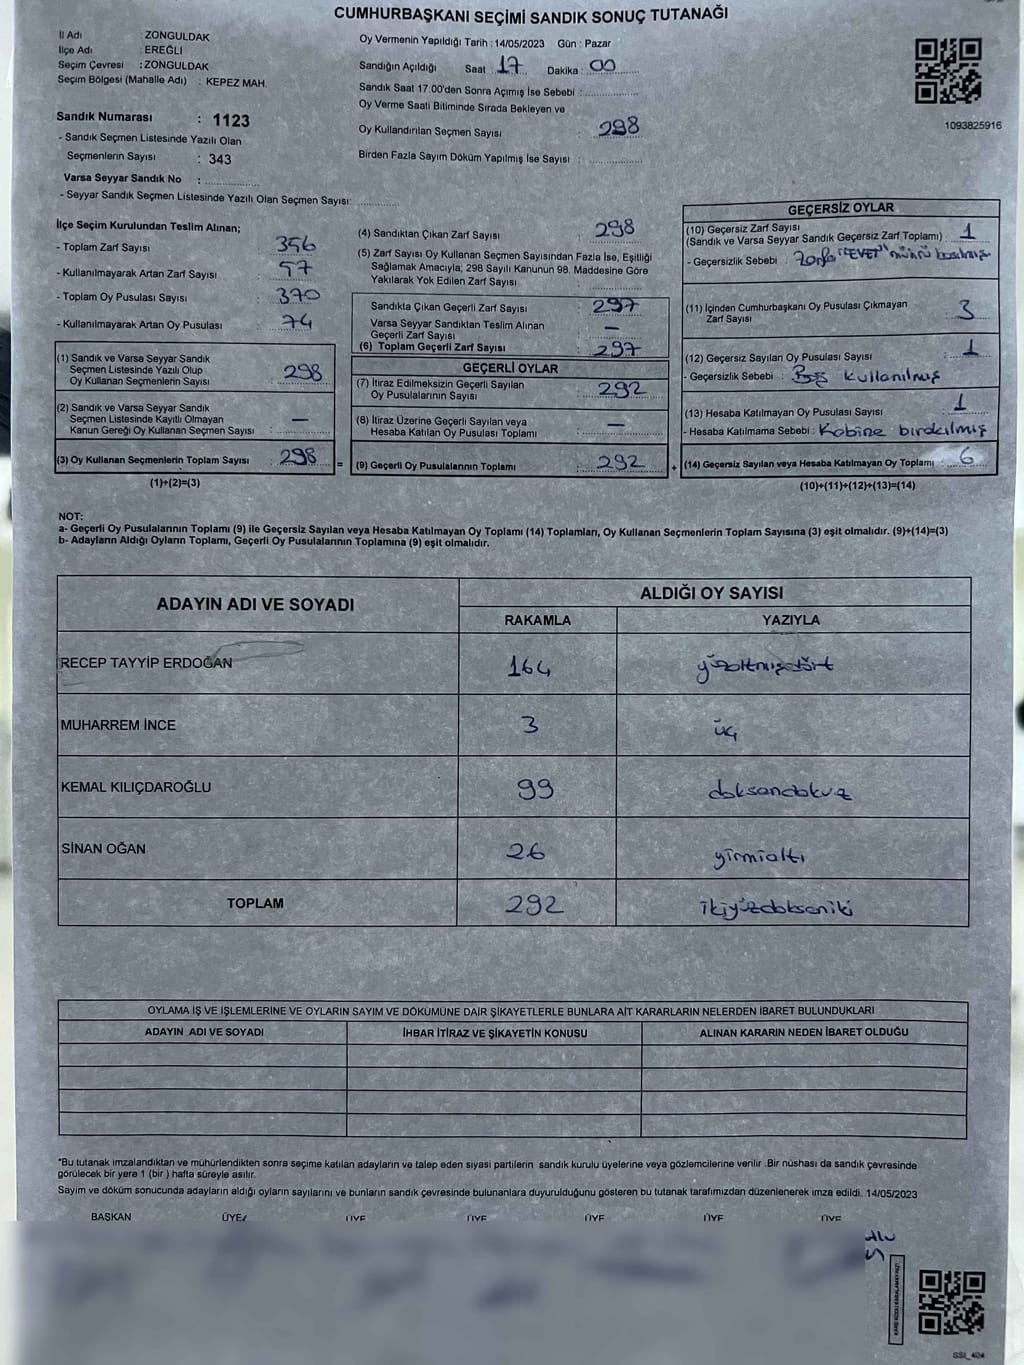 CUMHURBAŞKANI SEÇİMİ SANDIK SONUÇ TUTANAĞI
İl Adı : ZONGULDAK
İlçe Adı : EREĞLİ
Seçim Çevresi : ZONGULDAK
Seçim Bölgesi (Mahalle Adı) : KEPEZ MAH.
Sandık Numarası : 1123
- Sandık Seçmen Listesinde Yazılı Olan
Seçmenlerin Sayısı : 343
Varsa Seyyar Sandık No :
- Seyyar Sandık Seçmen Listesinde Yazılı Olan Seçmen Sayısı:
Oy Vermenin Yapıldığı Tarih : 14/05/2023 Gün : Pazar
Sandığın Açıldığı Saat 17 Dakika : 00
Sandık Saat 17.00'den Sonra Açımış İse Sebebi :
Oy Verme Saati Bitiminde Sırada Bekleyen ve
Oy Kullandırılan Seçmen Sayısı : 298
Birden Fazla Sayım Döküm Yapılmış İse Sayısı :
1093825916
İlçe Seçim Kurulundan Teslim Alınan;
- Toplam Zarf Sayısı : 356
- Kullanılmayarak Artan Zarf Sayısı : 57
- Toplam Oy Pusulası Sayısı : 370
- Kullanılmayarak Artan Oy Pusulası : 74
(1) Sandık ve Varsa Seyyar Sandık
Seçmen Listesinde Yazılı Olup
Oy Kullanan Seçmenlerin Sayısı : 298
(2) Sandık ve Varsa Seyyar Sandık
Seçmen Listesinde Kayıtlı Olmayan
Kanun Gereği Oy Kullanan Seçmen Sayısı : —
(3) Oy Kullanan Seçmenlerin Toplam Sayısı : 298
(1)+(2)=(3)
=
(4) Sandıktan Çıkan Zarf Sayısı : 298
(5) Zarf Sayısı Oy Kullanan Seçmen Sayısından Fazla İse, Eşitliği
Sağlamak Amacıyla; 298 Sayılı Kanunun 98. Maddesine Göre
Yakılarak Yok Edilen Zarf Sayısı :
Sandıkta Çıkan Geçerli Zarf Sayısı : 297
Varsa Seyyar Sandıktan Teslim Alınan
Geçerli Zarf Sayısı : —
(6) Toplam Geçerli Zarf Sayısı : 297
GEÇERLİ OYLAR
(7) İtiraz Edilmeksizin Geçerli Sayılan
Oy Pusulalarının Sayısı : 292
(8) İtiraz Üzerine Geçerli Sayılan veya
Hesaba Katılan Oy Pusulası Toplamı : —
(9) Geçerli Oy Pusulalarının Toplamı : 292
+
GEÇERSİZ OYLAR
(10) Geçersiz Zarf Sayısı
(Sandık ve Varsa Seyyar Sandık Geçersiz Zarf Toplamı) : 1
- Geçersizlik Sebebi : Zarfa "EVET" mührü basılmış
(11) İçinden Cumhurbaşkanı Oy Pusulası Çıkmayan
Zarf Sayısı : 3
(12) Geçersiz Sayılan Oy Pusulası Sayısı : 1
- Geçersizlik Sebebi : Boş kullanılmış
(13) Hesaba Katılmayan Oy Pusulası Sayısı : 1
- Hesaba Katılmama Sebebi : Kabine bırakılmış
(14) Geçersiz Sayılan veya Hesaba Katılmayan Oy Toplamı : 6
(10)+(11)+(12)+(13)=(14)
NOT:
a- Geçerli Oy Pusulalarının Toplamı (9) ile Geçersiz Sayılan veya Hesaba Katılmayan Oy Toplamı (14) Toplamları, Oy Kullanan Seçmenlerin Toplam Sayısına (3) eşit olmalıdır. (9)+(14)=(3)
b- Adayların Aldığı Oyların Toplamı, Geçerli Oy Pusulalarının Toplamına (9) eşit olmalıdır.
ADAYIN ADI VE SOYADI
ALDIĞI OY SAYISI
RAKAMLA YAZIYLA
RECEP TAYYİP ERDOĞAN 164 yüzaltmışdört
MUHARREM İNCE 3 üç
KEMAL KILIÇDAROĞLU 99 doksandokuz
SİNAN OĞAN 26 yirmialtı
TOPLAM 292 ikiyüzdoksaniki
OYLAMA İŞ VE İŞLEMLERİNE VE OYLARIN SAYIM VE DÖKÜMÜNE DAİR ŞİKAYETLERLE BUNLARA AİT KARARLARIN NELERDEN İBARET BULUNDUKLARI
ADAYIN ADI VE SOYADI İHBAR İTİRAZ VE ŞİKAYETİN KONUSU ALINAN KARARIN NEDEN İBARET OLDUĞU
*Bu tutanak imzalandıktan ve mühürlendikten sonra seçime katılan adayların ve talep eden siyasi partilerin sandık kurulu üyelerine veya gözlemcilerine verilir .Bir nüshası da sandık çevresinde
görülecek bir yere 1 (bir ) hafta süreyle asılır.
Sayım ve döküm sonucunda adayların aldığı oyların sayılarını ve bunların sandık çevresinde bulunanlara duyurulduğunu gösteren bu tutanak tarafımızdan düzenlenerek imza edildi. 14/05/2023
BAŞKAN ÜYE ÜYE ÜYE ÜYE ÜYE ÜYE
SSI_404